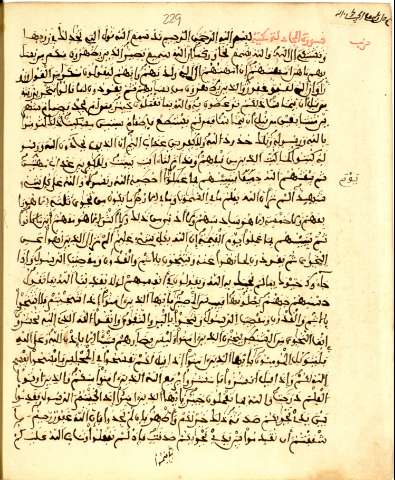 229
حزب
سورة المجادلة مدنية بسم الله الرحمن الرحيم قد سمع الله قول التي تجدلك في زوجها
وتشتكي إلى الله والله يسمع تحاوركما إن الله سميع بصير الذين يظهرون منكم من نسا
ئهم ما هن أمهتهم إن أمهتهم إلا الي ولدنهم وإنهم ليقولون منكرا من القول وزو
را وإن الله لعفو غفور والذين يظهرون من نسائهم ثم يعودون لما قالوا فتحرير رقبة
من قبل أن يتماسا ذلكم توعظون به والله بما تعملون خبير فمن لم يجد فصيام شهر
ين متتابعين من قبل أن يتماسا فمن لم يستطع فإطعام ستين مسكينا ذلك لتومنوا
بالله ورسوله وتلك حدود الله وللكفرين عذاب اليم إن الذين يحادون الله ورسو
له كبتوا كما كبت الذين من قبلهم وقد أنزلنا ءايت بينت وللكفرين عذاب مهين
يوم
يبعثهم الله جميعا فينبئهم بما عملوا أحصيه الله ونسوه والله على كل شيء
شهيد ألم تر أن الله يعلم ما في السموت وما في الارض ما يكون من نجوى ثلثة إلا هو را
بعهم ولا خمسة إلا هو سادسهم ولا أدنى من ذلك ولا أكثر إلا هو معهم أين ما كانوا
ثم ينبئهم بما عملوا يوم القيمة إن الله بكل شيء عليم ألم تر إلى الذين نهوا عن
النجوى ثم يعودون لما نهوا عنه ويتنجون بالاثم والعدون ومعصيت الرسول وإذا
جاءوك حيوك بما لم يحيك به الله ويقولون في أنفسهم لولا يعذبنا الله بما نقول
حسبهم جهنم يصلونها فبيس المصير يأيها الذين ءامنوا إذا تنجيتم فلا تتنجوا
بالاثم والعدون ومعصيت الرسول وتنجوا بالبر والتقوى واتقوا الله الذي إليه تحشرون
إنما النجوى من الشيطن ليحزن الذين ءامنوا وليس بضارهم شيئا إلا بإذن الله وعلى الله
فليتوكل المومنون يأيها الذين ءامنوا إذا قيل لكم تفسحوا في المجلس فافسحوا يفسح
الله لكم وإذا قيل انشزوا فانشزوا يرفع الله الذين ءامنوا منكم والذين أوتوا
العلم درجت والله بما تعملون خبير يأيها الذين ءامنوا إذا نجيتم الرسول فقدموا
بين يدي نجويكم صدقة ذلك خير لكم وأطهر فإن لم تجدوا فإن الله غفور رحيم ءا
شفقتم أن تقدموا بين يدي نجويكم صدقت فإذ لم تفعلوا وتاب الله عليكم
فأقيموا